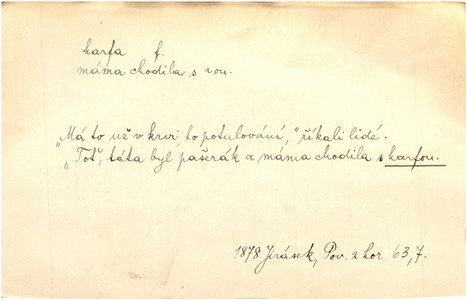 harfa f.
máma chodila s rou.
„Má to už v krvi to potulování," říkali lidé.
„Toť, táta byl pašerák a máma chodila s harfou.
1878 Jirásek, Pov. z hor 63,7.